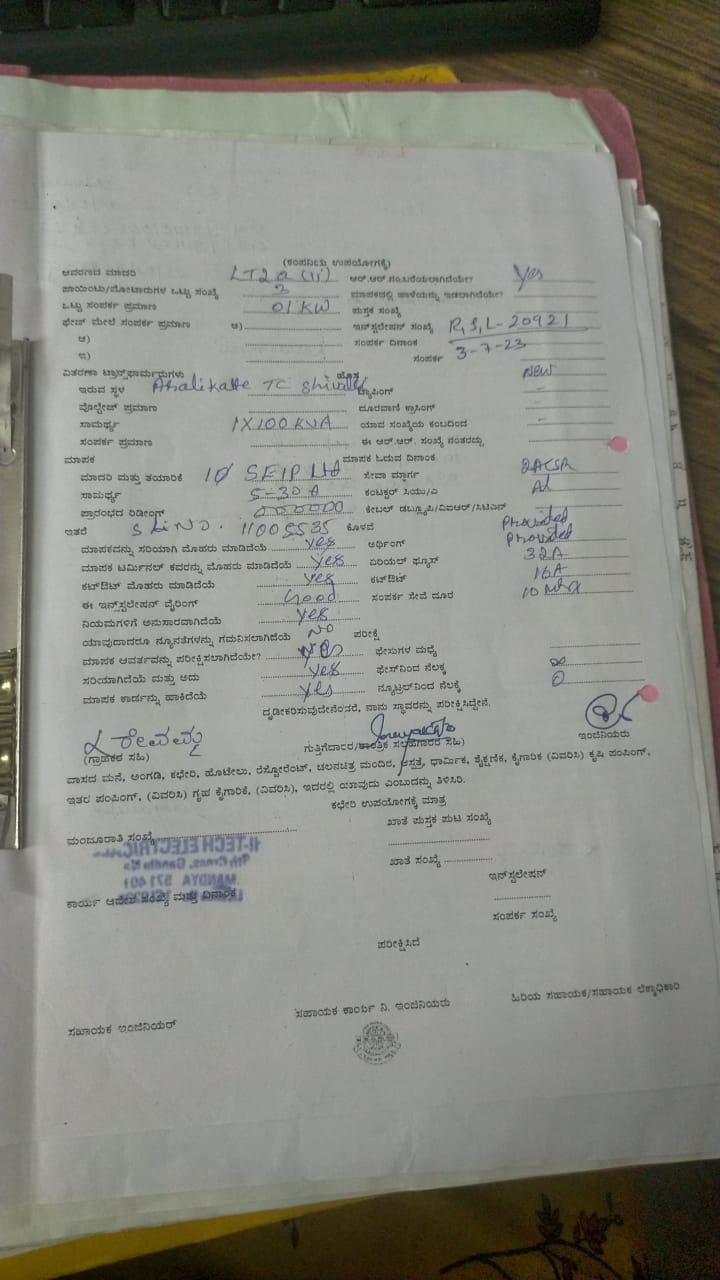 (ಕಂಪನಿಯ ಉಪಯೋಗಕ್ಕೆ)
ಆವರಣದ ಮಾದರಿ LT2a (ii) ಆರ್.ಆರ್.ನಂ.ಬರೆಯಲಾಗಿದೆಯೇ? Yes
ಪಾಯಿಂಟು/ಮೋಟಾರುಗಳ ಒಟ್ಟು ಸಂಖ್ಯೆ 3 ಮಾಪಕದಲ್ಲಿ ಹಾಳೆಯನ್ನು ಇಡಲಾಗಿದೆಯೇ?
ಒಟ್ಟು ಸಂಪರ್ಕ ಪ್ರಮಾಣ 01 KW ಪುಸ್ತಕ ಸಂಖ್ಯೆ
ಫೇಜ್ ಮೇಲೆ ಸಂಪರ್ಕ ಪ್ರಮಾಣ ಅ) ಇನ್‌ಸ್ಟಲೇಷನ್ ಸಂಖ್ಯೆ R,S,L-20921
ಆ) ಸಂಪರ್ಕ ದಿನಾಂಕ 3-7-23
ಇ) ಸಂಪರ್ಕ
ವಿತರಣಾ ಟ್ರಾನ್ಸ್‌ಫಾರ್ಮರುಗಳು NEW
ಇರುವ ಸ್ಥಳ TC Shivalli ಟ್ಯಾಪಿಂಗ್ -
ವೋಲ್ಟೇಜ್ ಪ್ರಮಾಣ ದೂರವಾಣಿ ಕ್ರಾಸಿಂಗ್ -
ಸಾಮರ್ಥ್ಯ 1X100 KVA ಯಾವ ಸಂಖ್ಯೆಯ ಕಂಬದಿಂದ -
ಸಂಪರ್ಕ ಪ್ರಮಾಣ ಈ ಆರ್.ಆರ್. ಸಂಖ್ಯೆ ನಂತರದ್ದು
ಮಾಪಕ ಮಾಪಕ ಓದುವ ದಿನಾಂಕ
ಮಾದರಿ ಮತ್ತು ತಯಾರಿಕೆ 1Ø Ltd ಸೇವಾ ಮಾರ್ಗ 2ACSR
ಸಾಮರ್ಥ್ಯ 5-30 A ಕಂಟಕ್ಟರ್ ಸಿಯು/ಎ Al
ಪ್ರಾರಂಭದ ರಿಡೀಂಗ್ 000000 ಕೇಬಲ್ ಡಬ್ಲ್ಯೂಪಿ/ವಿಐಆರ್/ಸಿಟಿಎನ್
ಇತರೆ SL.NO. 11005535 ಕೊಳವೆ Provided
ಮಾಪಕವನ್ನು ಸರಿಯಾಗಿ ಮೊಹರು ಮಾಡಿದೆಯೆ Yes ಅರ್ಥಿಂಗ್ Provided
ಮಾಪಕ ಟರ್ಮಿನಲ್ ಕವರನ್ನು ಮೊಹರು ಮಾಡಿದೆಯೆ Yes ಏರಿಯಲ್ ಫ್ಯೂಸ್ 32A
ಕಟ್‌ಔಟ್ ಮೊಹರು ಮಾಡಿದೆಯೆ Yes ಕಟ್‌ಔಟ್ 16A
ಈ ಇನ್‌ಸ್ಟಲೇಷನ್ ವೈರಿಂಗ್ Good ಸಂಪರ್ಕ ಸೇವೆ ದೂರ 10
ನಿಯಮಗಳಿಗೆ ಅನುಸಾರವಾಗಿದೆಯೆ Yes
ಯಾವುದಾದರೂ ನ್ಯೂನತೆಗಳನ್ನು ಗಮನಿಸಲಾಗಿದೆಯೆ No ಪರೀಕ್ಷೆ
ಮಾಪಕ ಆವರ್ತವನ್ನು ಪರೀಕ್ಷಿಸಲಾಗಿದೆಯೇ? ಫೇಸುಗಳ ಮಧ್ಯೆ
ಸರಿಯಾಗಿದೆಯೆ ಮತ್ತು ಅದು Yes ಫೇಸ್‌ನಿಂದ ನೆಲಕ್ಕೆ ∞
ಮಾಪಕ ಕಾರ್ಡನ್ನು ಹಾಕಿದೆಯೆ Yes ನ್ಯೂಟ್ರಲ್‌ನಿಂದ ನೆಲಕ್ಕೆ 0
ದೃಢೀಕರಿಸುವುದೇನೆಂದರೆ, ನಾನು ಸ್ಥಾವರನ್ನು ಪರೀಕ್ಷಿಸಿದ್ದೇನೆ.
(ಗ್ರಾಹಕರ ಸಹಿ) ಗುತ್ತಿಗೆದಾರರ/ತಾಂತ್ರಿಕ ಸಲಹಾಗಾರರ ಸಹಿ) ಇಂಜಿನಿಯರು
ವಾಸದ ಮನೆ, ಅಂಗಡಿ, ಕಛೇರಿ, ಹೊಟೇಲು, ರೆಸ್ಟೋರೆಂಟ್, ಚಲನಚಿತ್ರ ಮಂದಿರ, ಆಸ್ಪತ್ರೆ, ಧಾರ್ಮಿಕ, ಶೈಕ್ಷಣಿಕ, ಕೈಗಾರಿಕ (ವಿವರಿಸಿ) ಕೃಷಿ ಪಂಪಿಂಗ್,
ಇತರ ಪಂಪಿಂಗ್, (ವಿವರಿಸಿ) ಗೃಹ ಕೈಗಾರಿಕೆ, (ವಿವರಿಸಿ), ಇದರಲ್ಲಿ ಯಾವುದು ಎಂಬುದನ್ನು ತಿಳಿಸಿರಿ.
ಕಛೇರಿ ಉಪಯೋಗಕ್ಕೆ ಮಾತ್ರ
ಮಂಜೂರಾತಿ ಸಂಖ್ಯೆ ಖಾತೆ ಪುಸ್ತಕ ಪುಟ ಸಂಖ್ಯೆ
HI-TECH ELECTRICALS
MANDYA 571401
ಖಾತೆ ಸಂಖ್ಯೆ
ಇನ್‌ಸ್ಟಲೇಷನ್
ಕಾರ್ಯ ಆದೇಶ ಸಂಖ್ಯೆ ಮತ್ತು ದಿನಾಂಕ
ಸಂಪರ್ಕ ಸಂಖ್ಯೆ
ಪರೀಕ್ಷಿಸಿದೆ
ಸಹಾಯಕ ಇಂಜಿನಿಯರ್ ಸಹಾಯಕ ಕಾರ್ಯ ನಿ. ಇಂಜಿನಿಯರು ಹಿರಿಯ ಸಹಾಯಕ/ಸಹಾಯಕ ಲೆಕ್ಕಾಧಿಕಾರಿ